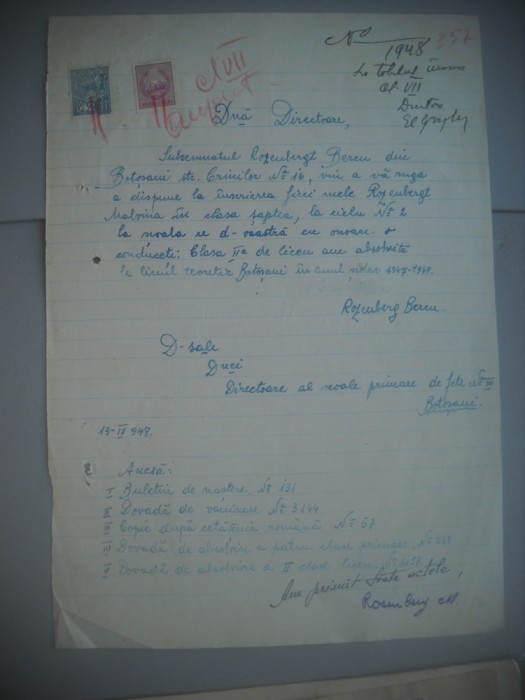 No
1948
357
Cl VII
La tabloul
Cl. VII
Dnă Directoare,
Subsemnatul Rozenbergt Bercu din
Botoșani str. Crinilor No 16, vin a vă ruga
a dispune la înscrierea fiicei mele Rozenbergt
Malvina în clasa șaptea, la ciclu No 2
la școala ce d-voastră cu onoare o
conduceți. Clasa IIa de liceu am absolvit-o
la liceul teoretic Botoșani în anul școlar 1947-1948.
Rozenberg Bercu.
D-sale
Directoare al școale primare de fete No
Botoșani.
13-II 948.
Anexă:
I Buletin de naștere No 131
Dovadă de vaccinare No 3144
Copie după cetățenia română No 57
Dovadă de absolvire a patru clase primare No
Dovadă de absolvire a II clase liceu No
Am primit toate actele,